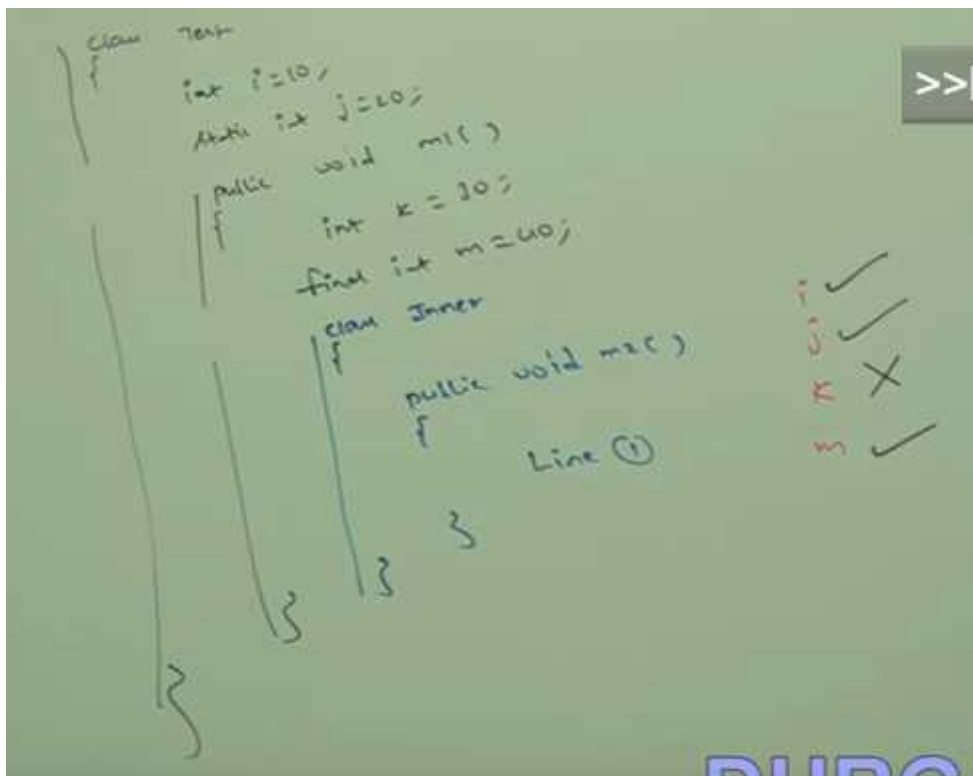 class Test
{
int i=10;
static int j=20;
public void m1( )
{
int k = 30;
final int m=40;
class Inner
{
public void m2( )
{
Line ①
}
}
}
}
i ✓
j ✓
k ✗
m ✓
>>